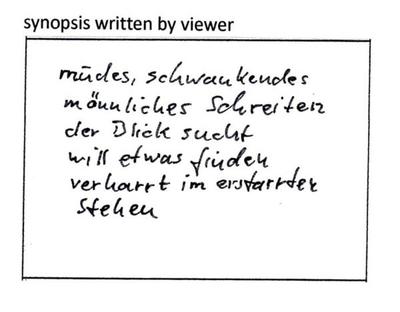 synopsis written by viewer
müdes, schwankendes
männliches Schreiten
der Blick sucht
will etwas finden
verharrt im erstarrter
Stehen